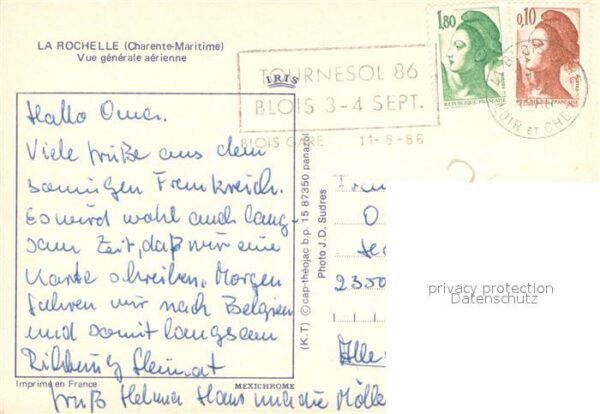 LA ROCHELLE (Charente-Maritime)
Vue générale aérienne
1,80
0,10
REPUBLIQUE FRANÇAISE
TOURNESOL 86
BLOIS 3-4 SEPT.
BLOIS GARE 11-8-86
LOIR ET CHE
IRIS
Hallo Omer.
Viele Grüße aus dem
sonnigen Frankreich.
Es wird wohl auch lang-
sam Zeit, daß wir eine
Karte schreiben. Morgen
fahren wir nach Belgien
und somit langsam
Richtung Heimat
Gruß Helma Hans und die Mölle
(K.T) © cap-théojac b.p. 15 87350 panazol
Photo J.D. Sudres
O
2350
Alle
privacy protection
Datenschutz
Imprimé en France
MEXICHROME